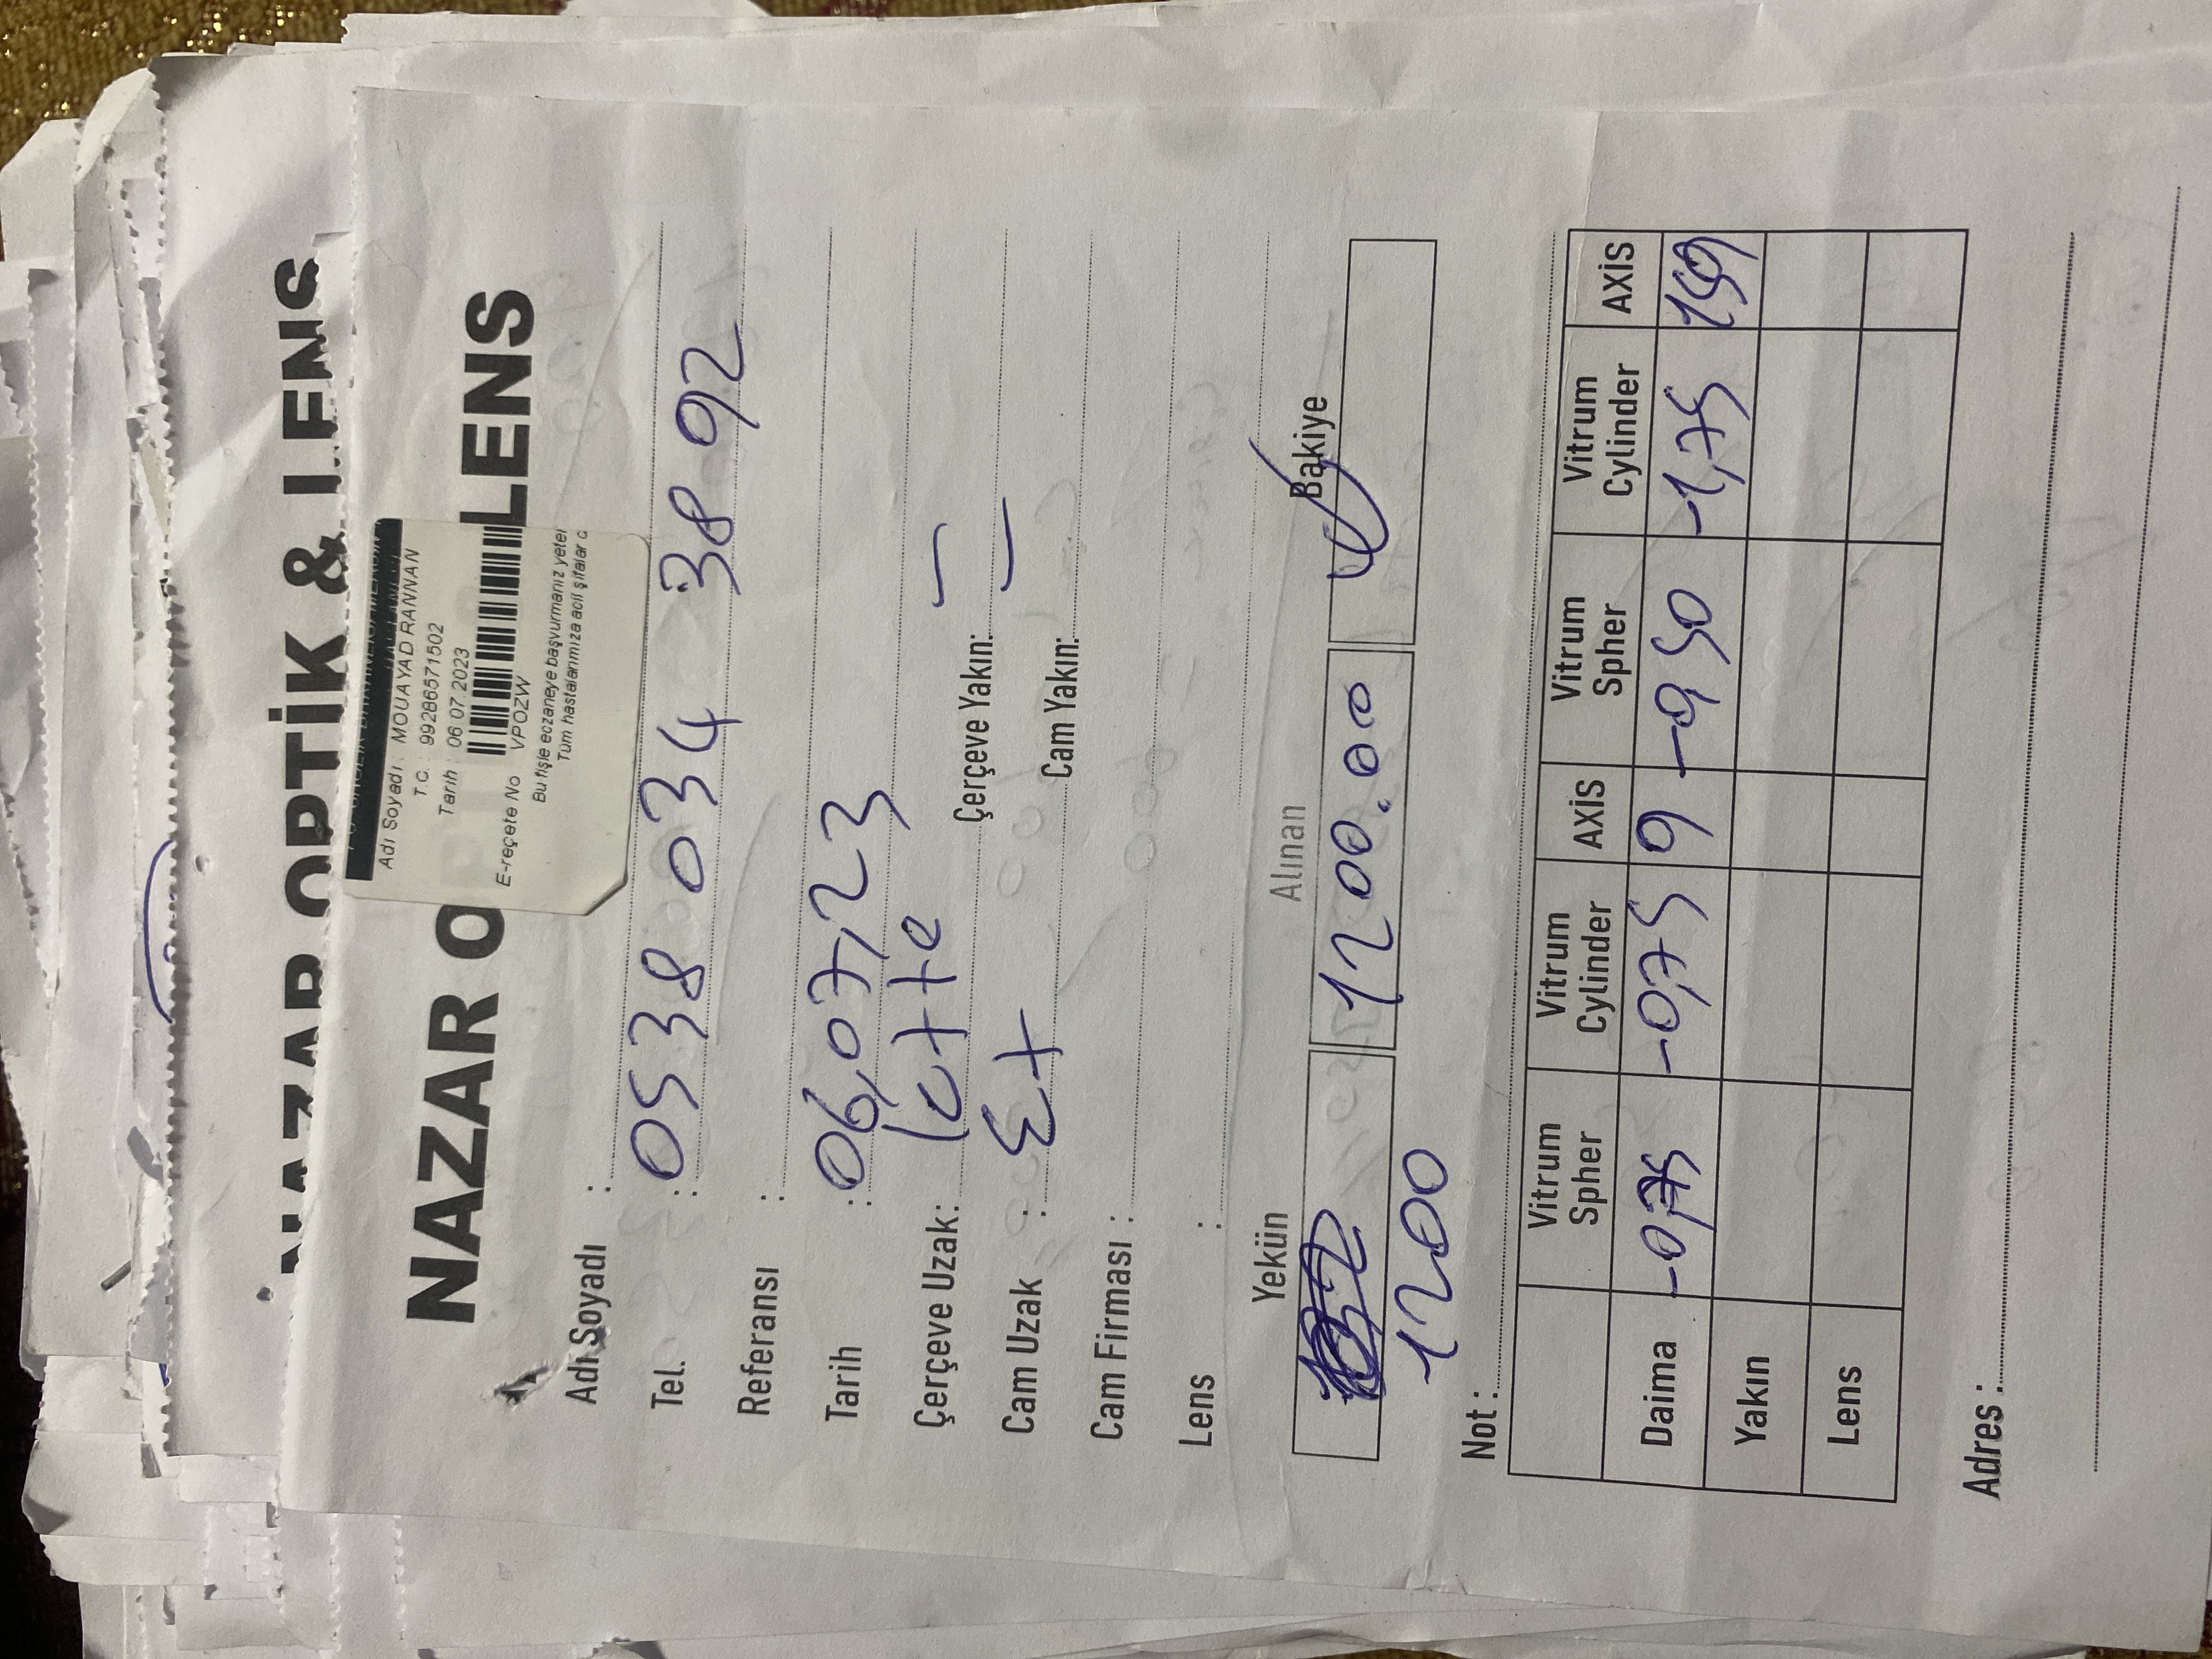 NAZAR OPTİK & LENS
NAZAR O LENS
Adı Soyadı : MOUAYAD RANNAN
T.C. : 99286571502
Tarih : 06.07.2023
E-reçete No VPOZW
Bu fişle eczaneye başvurmanız yeter
Tüm hastalarımıza acil şifalar d
Adı Soyadı :
Tel. : 0538 034 38 92
Referansı :
Tarih : 06,07,23
Çerçeve Uzak: Çerçeve Yakın: —
Cam Uzak : Ex Cam Yakın: —
Cam Firması :
Lens :
Yekün Alınan Bakiye
1200.00 ✓
1200
Not :
Vitrum Spher Vitrum Cylinder AXİS Vitrum Spher Vitrum Cylinder AXİS
Daima -0,75 -0,75 9 -0,50 -1,75 159
Yakın
Lens
Adres :